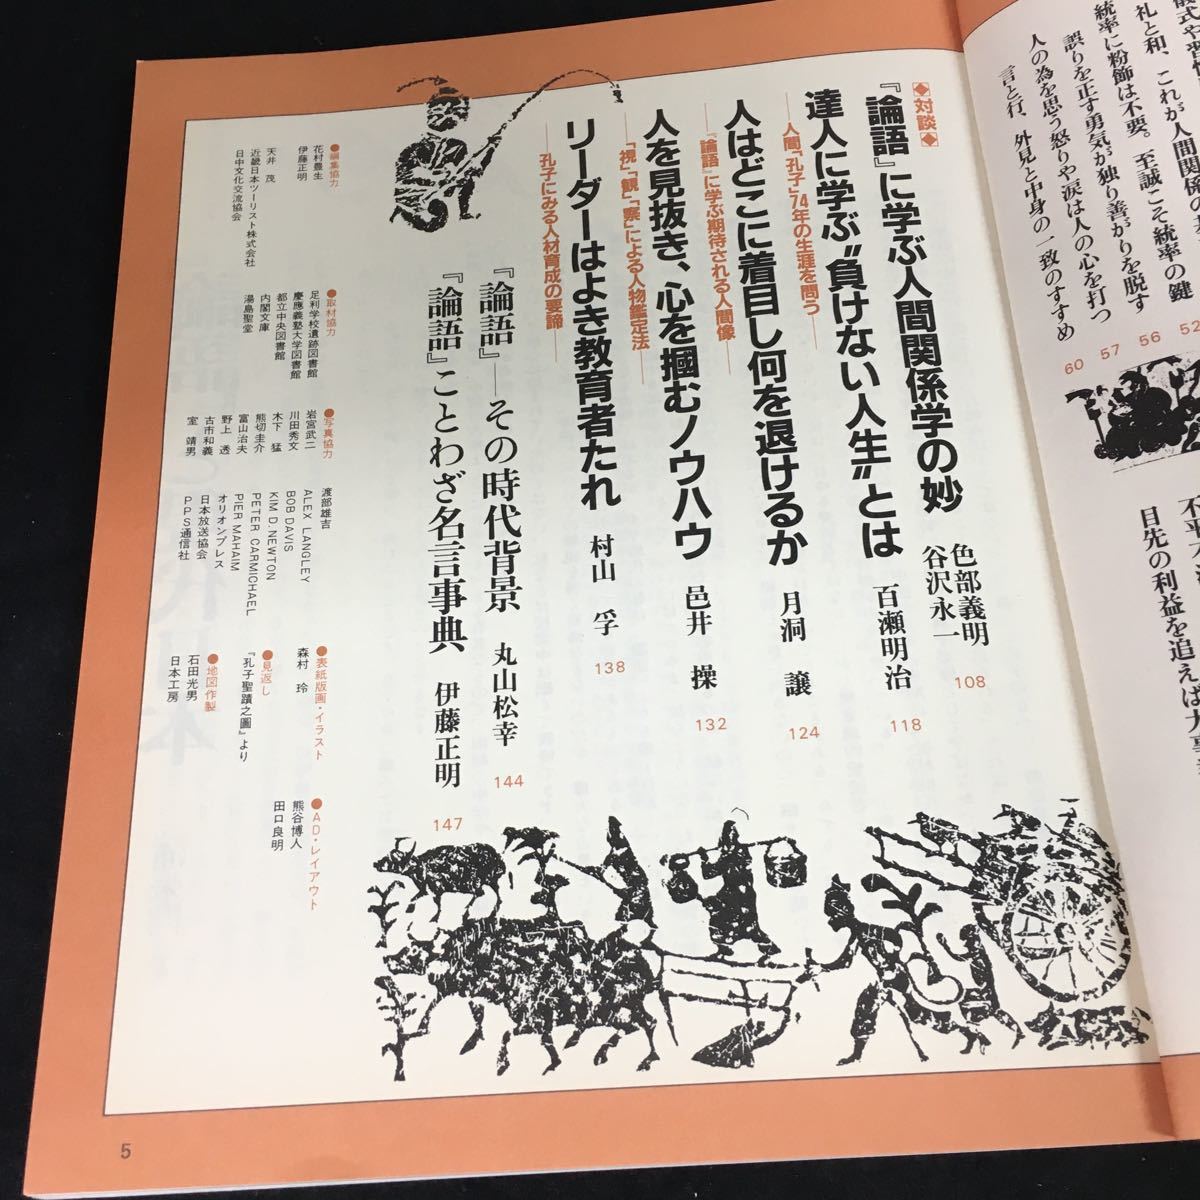 儀式や習慣
礼と和、これが人間関係の基
統率に粉飾は不要。至誠こそ統率の鍵
52
誤りを正す勇気が独り善がりを脱す
56
人の為を思う怒りや涙は人の心を打つ
57
言と行、外見と中身の一致のすすめ
60
目先の利益を追えば大事
◆対談◆
『論語』に学ぶ人間関係学の妙
色部義明
谷沢永一
108
達人に学ぶ“負けない人生”とは
百瀬明治
118
―人間「孔子」74年の生涯を問う―
人はどこに着目し何を退けるか
月洞 譲
124
―『論語』に学ぶ期待される人間像―
人を見抜き、心を掴むノウハウ
邑井 操
132
―「視」「観」「察」による人物鑑定法―
リーダーはよき教育者たれ
村山 孚
138
―孔子にみる人材育成の要諦―
『論語』―その時代背景
丸山松幸
144
『論語』ことわざ名言事典
伊藤正明
147
●編集協力
花村豊生
伊藤正明
天井 茂
近畿日本ツーリスト株式会社
日中文化交流協会
●取材協力
足利学校遺跡図書館
慶應義塾大学図書館
都立中央図書館
内閣文庫
湯島聖堂
●写真協力
岩宮武二
川田秀文
木下 猛
熊切圭介
富山治夫
野上 透
古市和義
室 靖男
渡部雄吉
ALEX LANGLEY
BOB DAVIS
KIM D. NEWTON
PETER CARMICHAEL
PIER MAHAIM
オリオンプレス
日本放送協会
PPS通信社
●表紙版画・イラスト
森村 玲
●見返し
『孔子聖蹟之圖』より
●地図作製
石田光男
日本工房
●AD・レイアウト
熊谷博人
田口良明
5